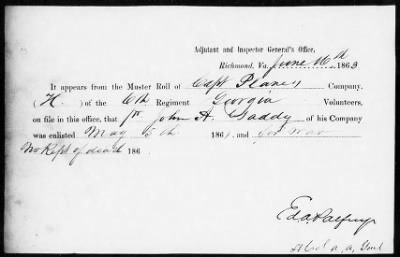 Adjutant and Inspector General's Office,
Richmond, Va. June 16th 1863
It appears from the Muster Roll of Capt Plane's Company,
(K.) of the 6th Regiment Georgia Volunteers,
on file in this office, that John A. Gaddy of his Company
was enlisted May 5th 1861, and for War
No Rept of death 186